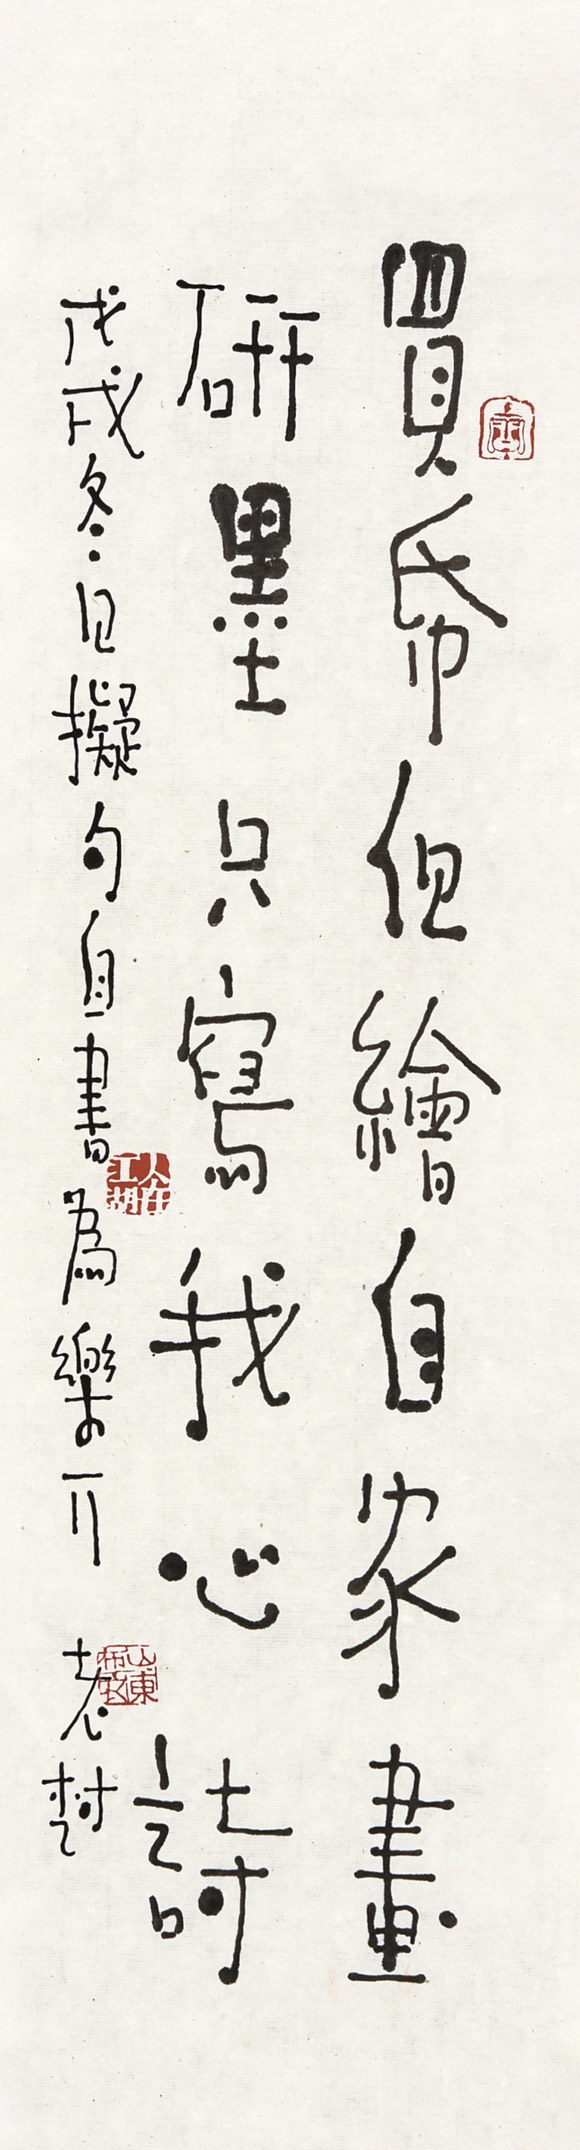 買帋但繪自家畫
研墨只寫我心詩
戊戌冬日擬句自書為樂 老樹
人在江湖